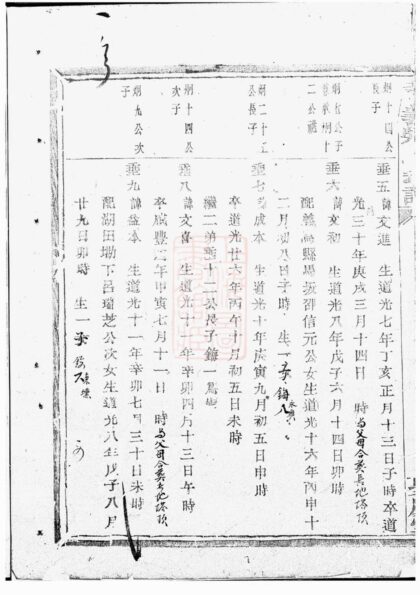 炯十四公
長子
垂五 諱文進 生道光七年丁亥正月十三日子時卒道
光三十年庚戌三月十四日 時与父母合葬長地塔頂
炯七公子
二公祧
垂六 諱文初 生道光八年戊子六月十四日卯時
配義烏縣 邵信元公女生道光十六年丙申十
二月初八日子時 生一
炯二十五
公長子
垂七 成本 生道光十年庚寅九月初五日申時
卒道光廿六年丙午十月初五日未時
繼二弟垂十二公長子 一為
炯十四公
次子
垂八 諱文喜 生道光十一年辛卯四月十三日午時
卒咸豐 年甲寅七月十一日 時与父母合葬長地塔頂
炯九公次
子
垂九 諱益本 生道光十一年辛卯七月三十日未時
配湖田坳下呂瑞芝公次女生道光八年戊子八月
廿九日卯時 生一